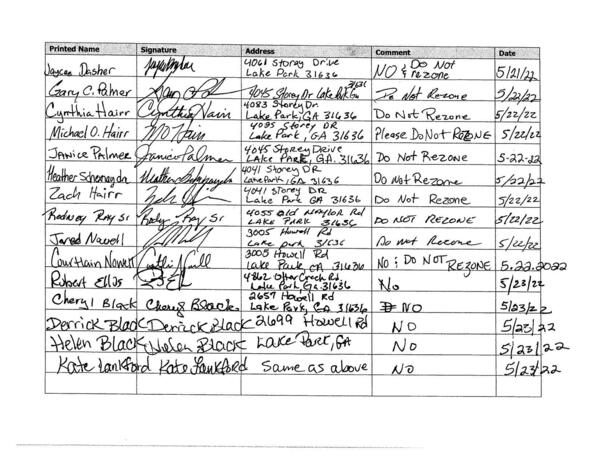 Printed Name Signature Address Comment Date
Jaycee Dasher 4061 Storey Drive Lake Park 31636 NO Do Not rezone 5/21/22
Gary C. Palmer 4045 Storey Dr Lake Park Ga 31636 Do Not Rezone 5/22/22
Cynthia Hairr Cynthia Hairr 4083 Storey Dr. Lake Park, GA 31636 Do Not Rezone 5/22/22
Michael O. Hairr MO Hairr 4095 Storey DR Lake Park, GA 31636 Please Do Not REZONE 5/22/22
JANICE PALMER Janice Palmer 4045 Storey Drive LAKE PARK, GA. 31636 Do Not Rezone 5-22-22
Heather 4041 Storey DR Lake Park, GA 31636 Do Not Rezone 5/22/22
Zach Hairr 4041 Storey DR Lake Park GA 31636 Do Not Rezone 5/22/22
Rodney Ray Sr Rodney Ray Sr 4055 Old Naylor Rd LAKE PARK 31636 DO NOT REZONE 5/22/22
Jared Nowell 3005 Howell Rd Lake park 31636 Do not Rezone 5/22/22
Courtnain Nowell 3005 Howell Rd Lake Park GA 31636 NO; DO NOT REZONE 5.22.2022
Robert Ellis 4862 Otter Creek Rd Lake Park Ga 31636 No 5/23/22
Cheryl Black Cheryl Black 2657 Howell Rd Lake Park, GA 31636 NO 5/23/22
Derrick Black Derrick Black 2699 Howell Rd NO 5/23/22
Helen Black Helen Black Lake Park, GA No 5/23/22
Kate Lankford Kate Lankford Same as above NO 5/23/22